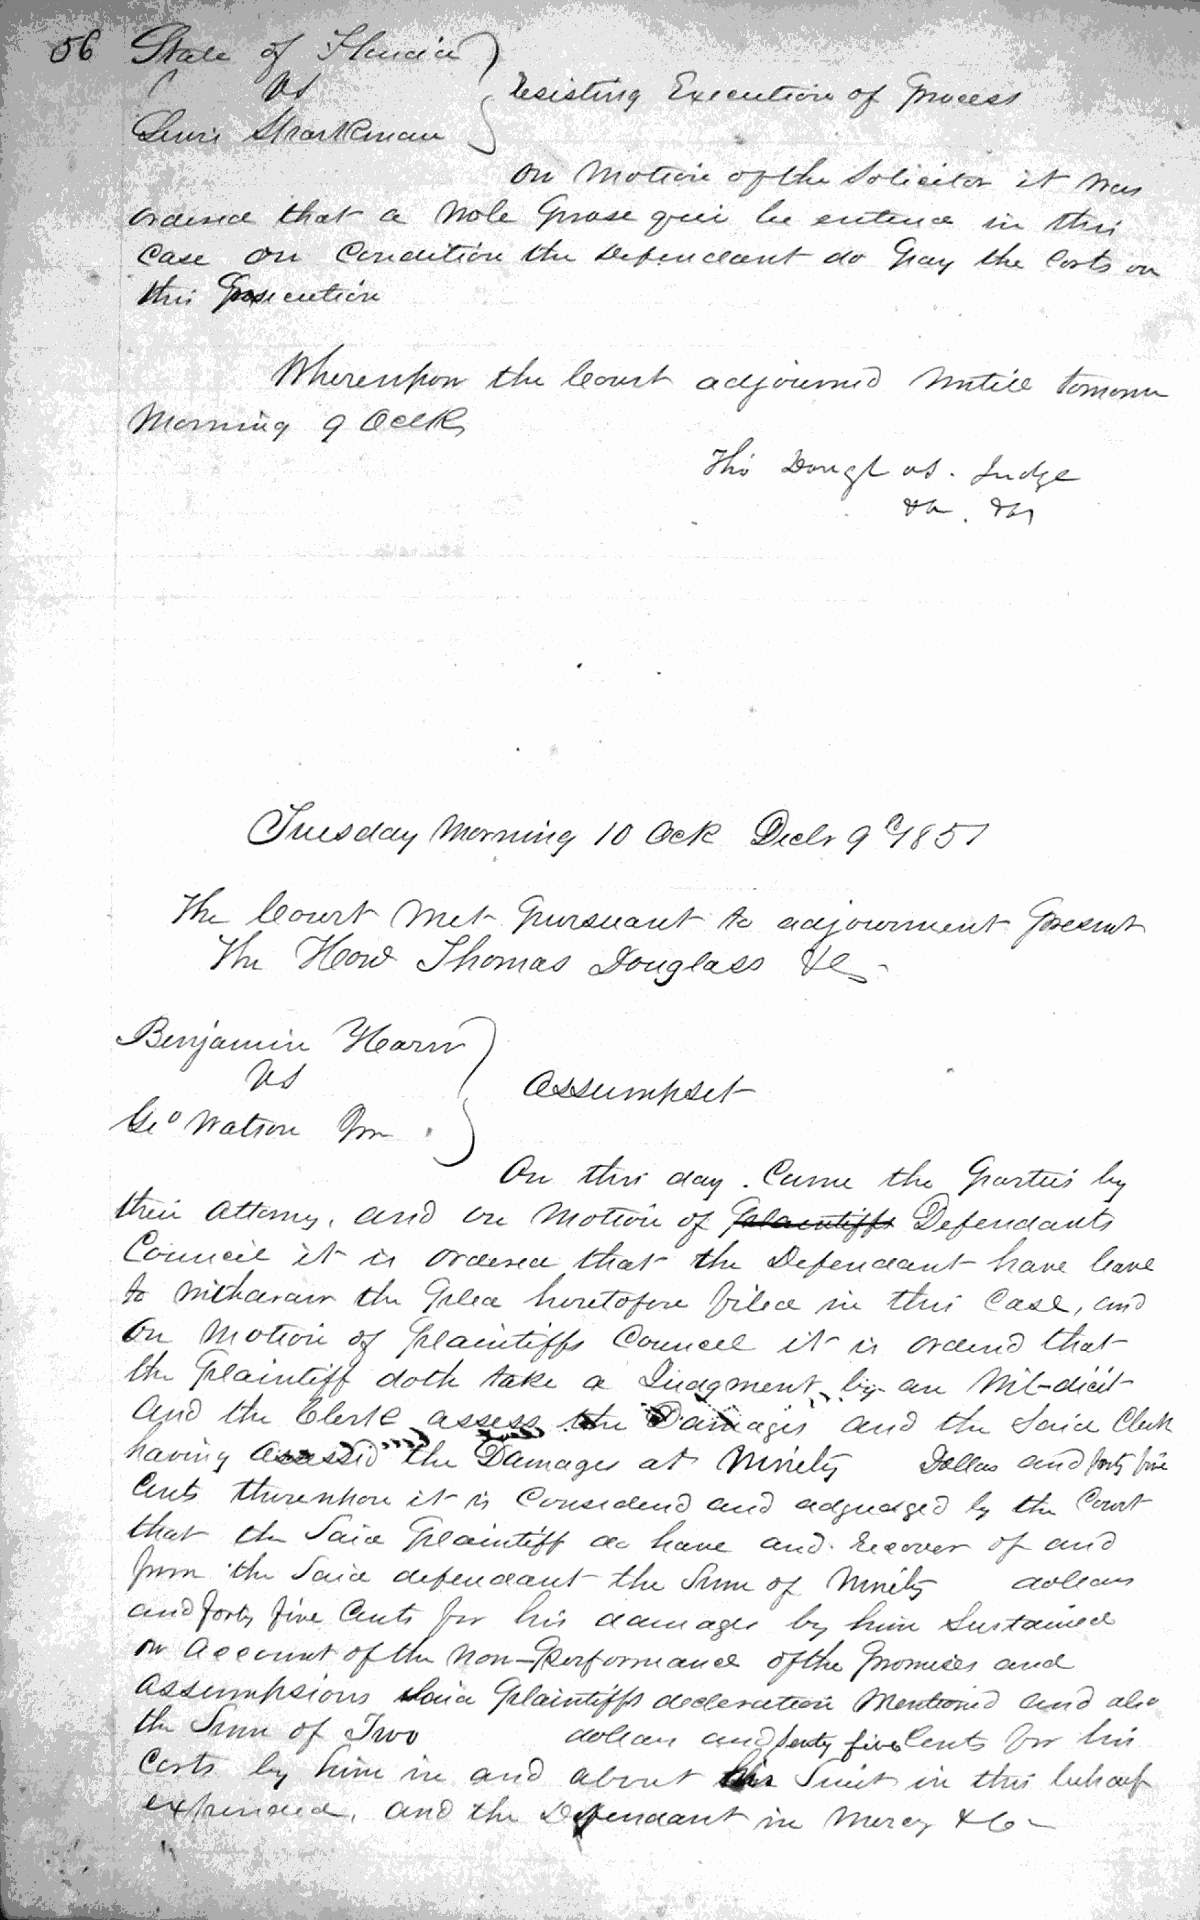 56 State of Florida
vs
Lewis Sparkman
Resisting Execution of Process
On Motion of the Solicitor it was
ordered that a Nole Prosequi be entered in this
Case on Condition the Defendant do Pay the Costs on
this Prosecution
Whereupon the Court adjourned untill tomorrow
Morning 9 Oclk
Tho Douglas. Judge
&c. &c
Tuesday Morning 10 Ock Decbr 9th 1851
The Court Met Pursuant to adjournment Present
The Hond Thomas Douglass &c
Benjamin Hearn
vs
Geo Watson Jnr
Assumpset
On this day. Came the Parties by
their Attorny, and on Motion of Plaintiffs Defendants
Council it is ordered that the Defendant have leave
to withdraw the Plea heretofore filed in this Case, and
On Motion of Plaintiffs Council it is orderd that
the Plaintiff doth take a Judgment by an Nil-dicit
And the Clerk assess the Damages and the Said Clerk
having Assessd the Damages at Ninety Dollas and forty five
Cents thereuhon it is Considerd and adjudged by the Court
that the Said Plaintiff do have and Recover of and
from the Said defendant the Sum of Ninety dollars
and forty five Cents for his damages by him Sustained
on Account of the Non-Performance of the Promises and
Assumpsions Said Plaintiffs decleration Mentioned and also
the Sum of Two dollars and forty five Cents for his
Costs by him in and about his Suit in this behalf
expended, and the Defendant in Mercy &c